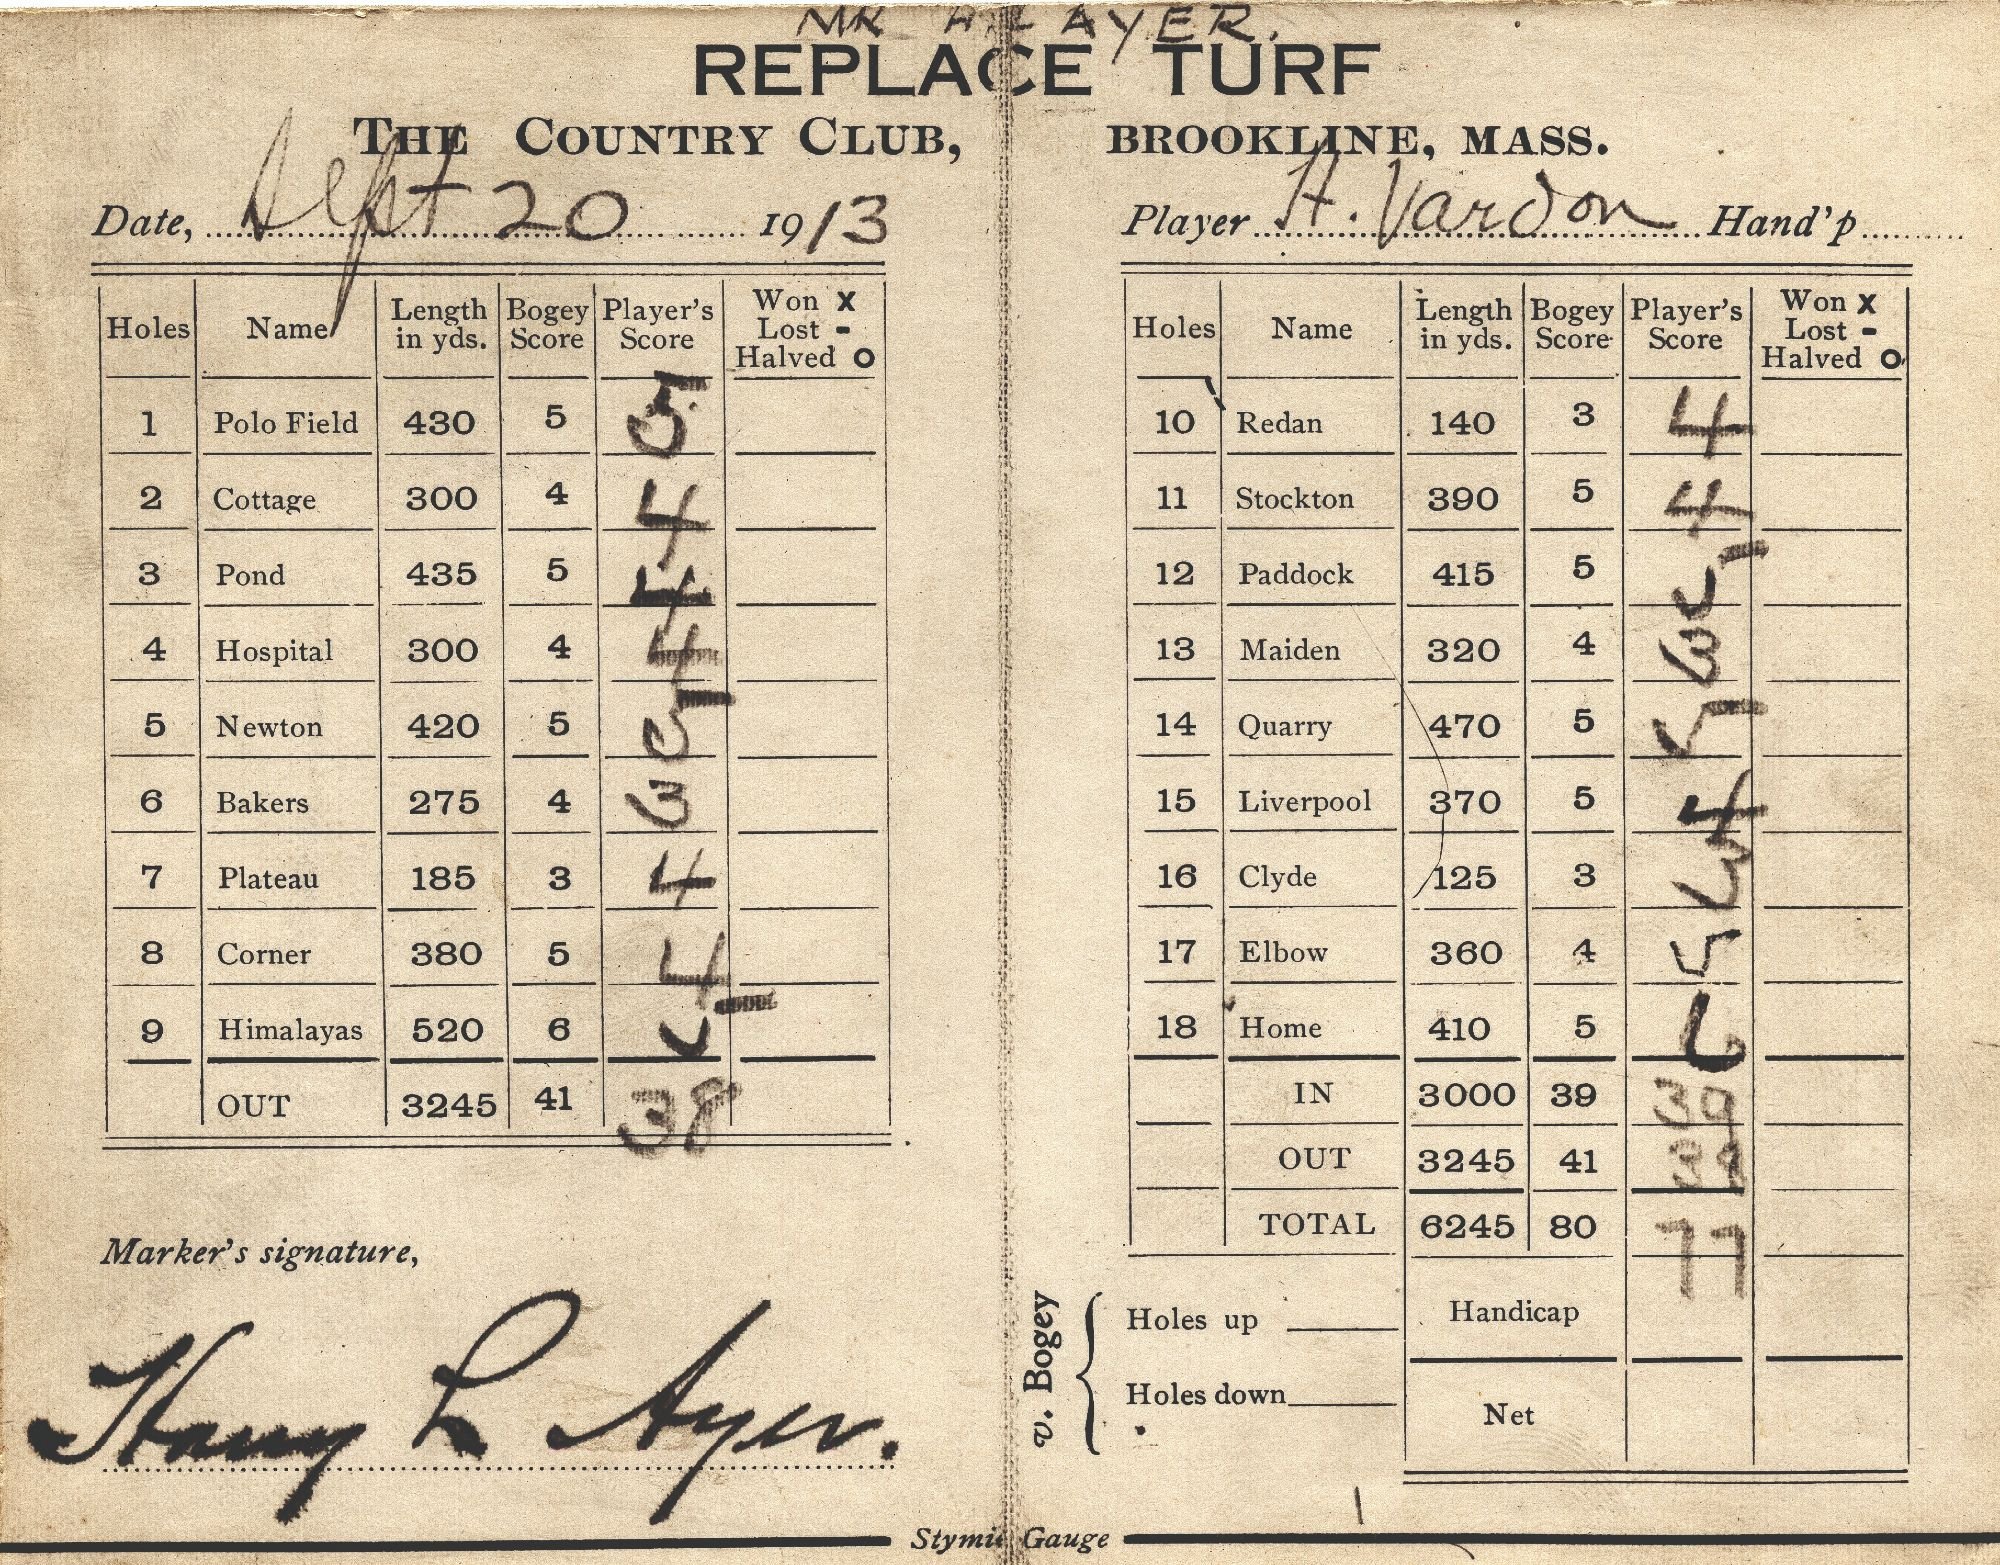 MR H L AYER.
REPLACE TURF
THE COUNTRY CLUB, BROOKLINE, MASS.
Date, Sept 20 1913 Player H. Vardon Hand'p
Holes Name Length in yds. Bogey Score Player's Score Won X Lost - Halved O
1 Polo Field 430 5 5
2 Cottage 300 4 4
3 Pond 435 5 4
4 Hospital 300 4 4
5 Newton 420 5 5
6 Bakers 275 4 3
7 Plateau 185 3 4
8 Corner 380 5 4
9 Himalayas 520 6 5
OUT 3245 41 38
Marker's signature,
Harry L Ayer.
Holes Name Length in yds. Bogey Score Player's Score Won X Lost - Halved O
10 Redan 140 3 4
11 Stockton 390 5 4
12 Paddock 415 5 5
13 Maiden 320 4 3
14 Quarry 470 5 5
15 Liverpool 370 5 4
16 Clyde 125 3 3
17 Elbow 360 4 5
18 Home 410 5 6
IN 3000 39 39
OUT 3245 41 38
TOTAL 6245 80 77
v. Bogey
Holes up
Holes down
Handicap
Net
Stymie Gauge